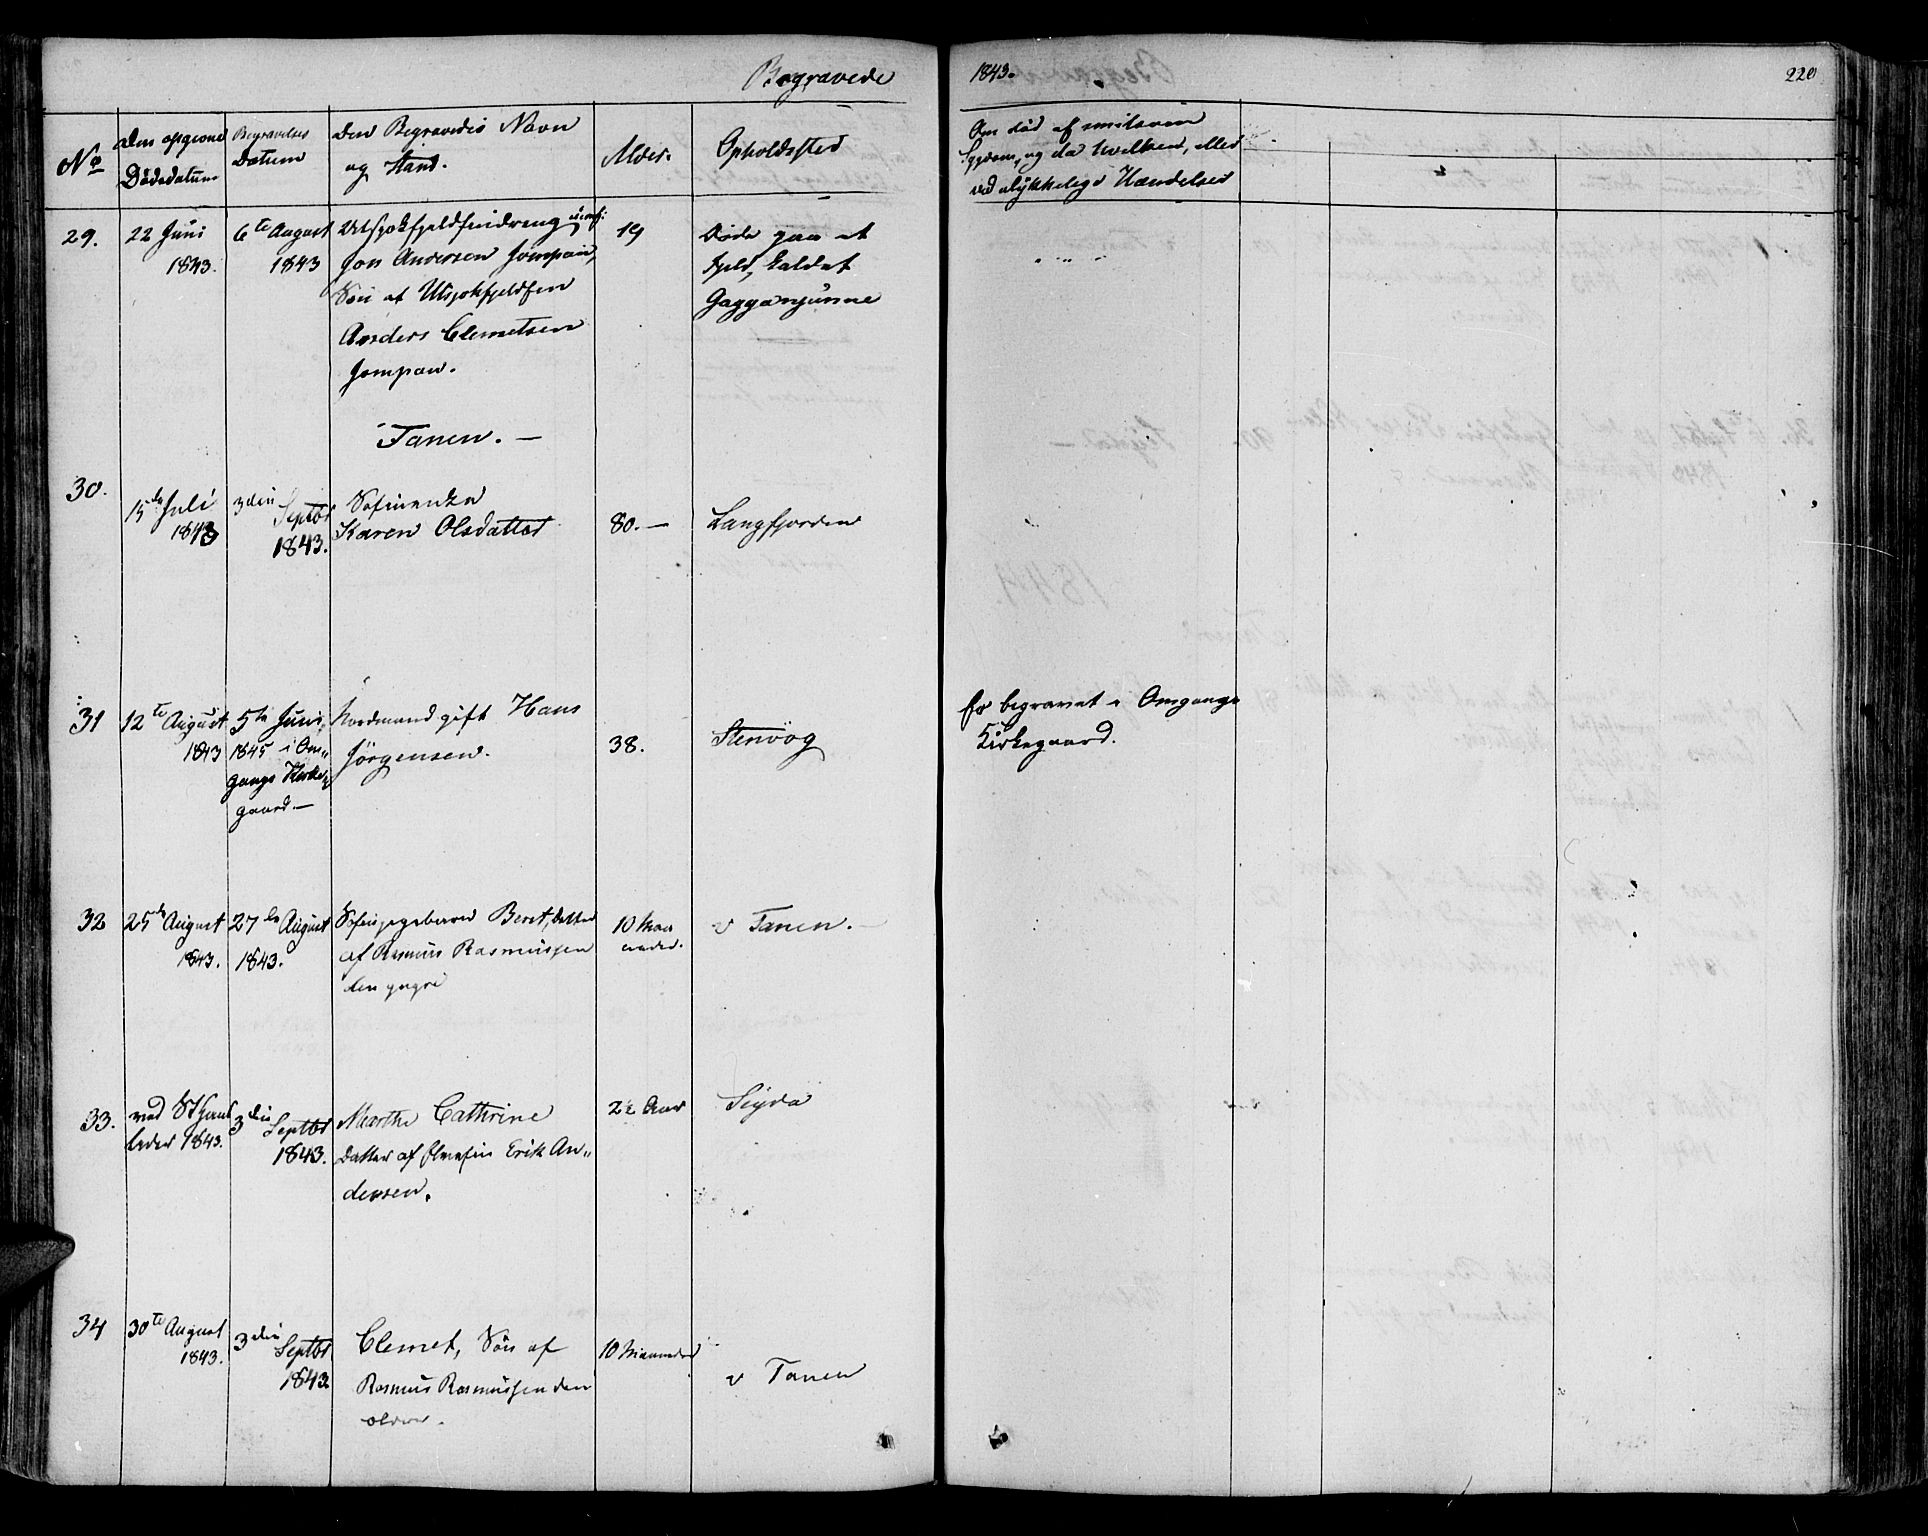 Begravede
1843.
220
No
Den opgivne
Dödsdatum
Begravelses
Datum
Den Begravedes Navn
og Stand.
Alder.
Opholdsted
Om död af smitsom
Sygdom, og da hvilken, eller
ved ulykkelige Hændelser
29.
22 Juni
1843.
6te August
1843
Utsjokfjeldfindreng
Jon Andersen Jompan,
Sön af Utsjokfjeldfin
Anders Clemetsen
Jompan.
19
Döde paa et
Fjeld, kaldet
Gagganjunne
Tanen. —
30.
15de Juli
1843
3die Septbr
1843.
Söfinenke
Karen Olsdatter
80. —
Langfjorden
31
12te August
1843
5te Juni
1845 i Om„
gangs Kirke„
gaard. —
Nordmand gift Hans
Jörgensen.
38.
Stenvog
Er begravet i Omgangs
Kirkegaard.
32
25de August
1843.
27de August
1843.
Söfinpigebarn Beret, Datter
af Rasmus Rasmussen
den yngre
10 Maa
neder.
v Tanen. —
33.
ved St Hans
leder 1843.
3die Septbr
1843.
Marthe Cathrine
Datter af Elvefin Erik An„
dersen.
2½ Aar
Seyda
34
30te August
1843.
3die Septbr
1843
Clemet, Sön af
Rasmus Rasmussen den
eldre.
10 Maaneder
v Tanen